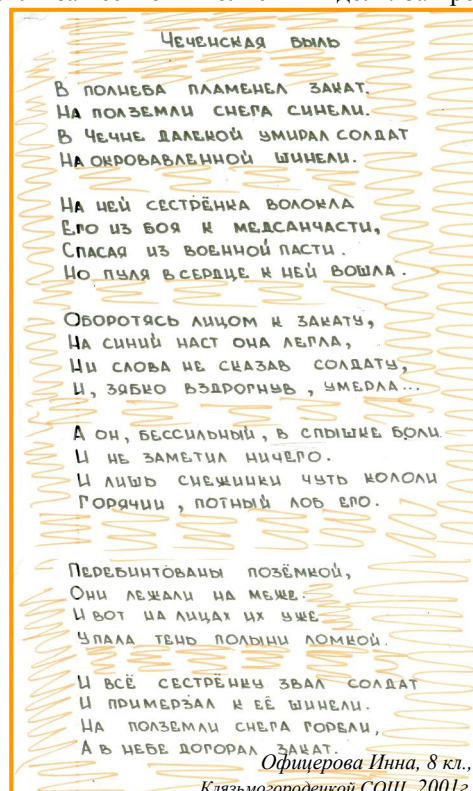 Чеченская быль
В полнеба пламенел закат,
На полземли снега синели.
В Чечне далекой умирал солдат
На окровавленной шинели.
На ней сестрёнка волокла
Его из боя к медсанчасти,
Спасая из военной пасти.
Но пуля в сердце к ней вошла.
Оборотясь лицом к закату,
На синий наст она легла,
Ни слова не сказав солдату,
И, зябко вздрогнув, умерла...
А он, бессильный, в спышке боли
И не заметил ничего.
И лишь снежинки чуть кололи
Горячий, потный лоб его.
Перебинтованы позёмкой,
Они лежали на меже.
И вот на лицах их уже
Упала тень полыни ломкой.
И всё сестрёнку звал солдат
И примерзал к её шинели.
На полземли снега горели,
А в небе догорал закат.
Офицерова Инна, 8 кл.,
Клязьмогородецкой СОШ, 2001г